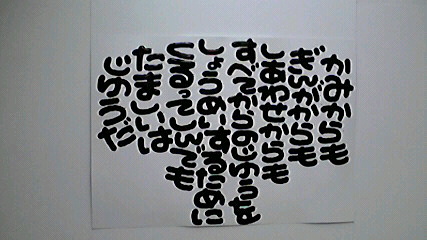 かみからも
ぎんがからも
しあわせからも
すべてからのじゆうを
しょうめいするために
くるってしんでも
たましいは
じゆうだ